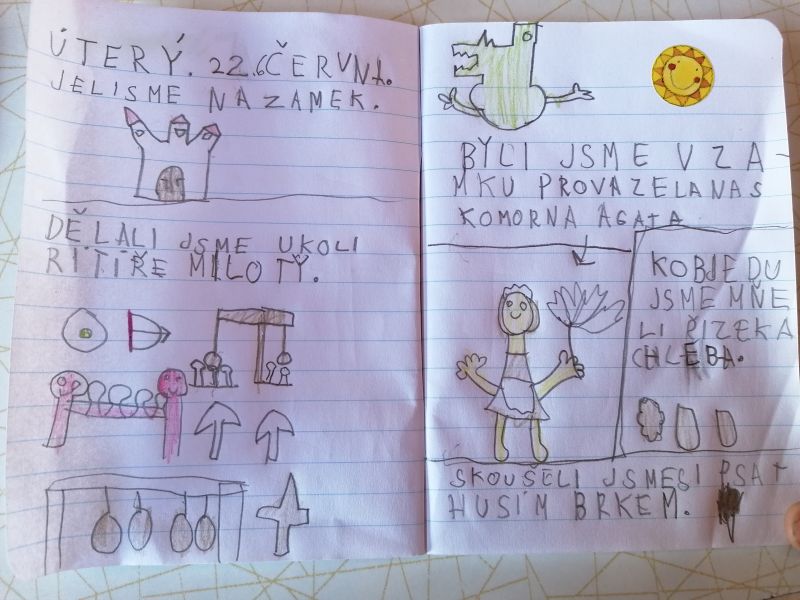 ÚTERÝ. 22.6ČERVNA.
JELISME NAZAMEK.
DĚLALI JSME UKOLI
RITIŘE MILOTY.
BYLI JSME V ZA-
MKU PROVAZELANAS
KOMORNA AGATA
KOBJEDU
JSME MĚ
LI ŘIZEKA
CHLEBA.
SKOUŠELI JSMESI PSAT
HUSÍM BRKEM.